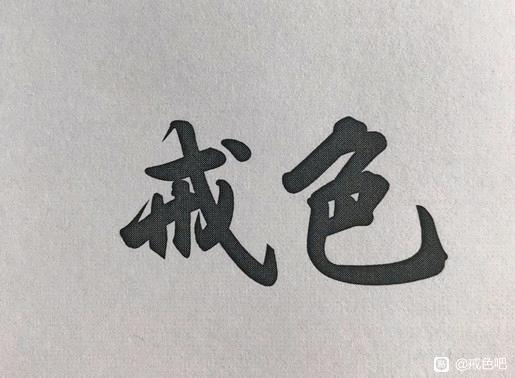 戒色
@戒色吧